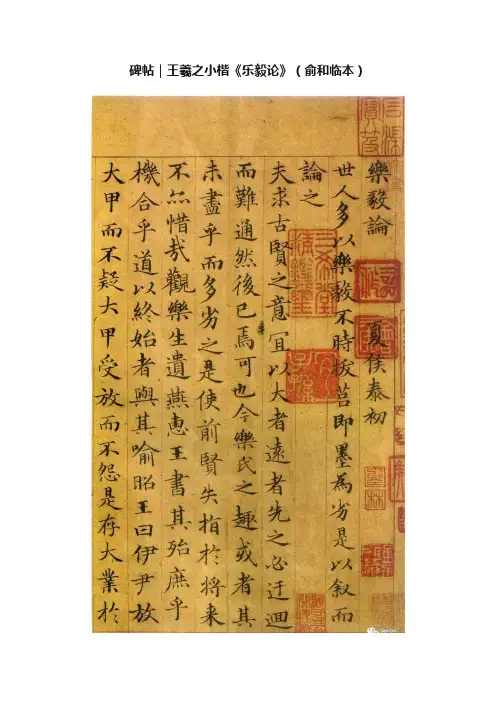 碑帖｜王羲之小楷《乐毅论》（俞和临本）
樂毅論 夏侯泰初
世人多以樂毅不時拔莒即墨為劣是以叙而
論之
夫求古賢之意宜以大者遠者先之必迂迴
而難通然後已焉可也今樂氏之趣或者其
未盡乎而多劣之是使前賢失指於将来
不亦惜哉觀樂生遺燕惠王書其殆庶乎
機合乎道以終始者與其喻昭王曰伊尹放
大甲而不疑大甲受放而不怨是存大業於